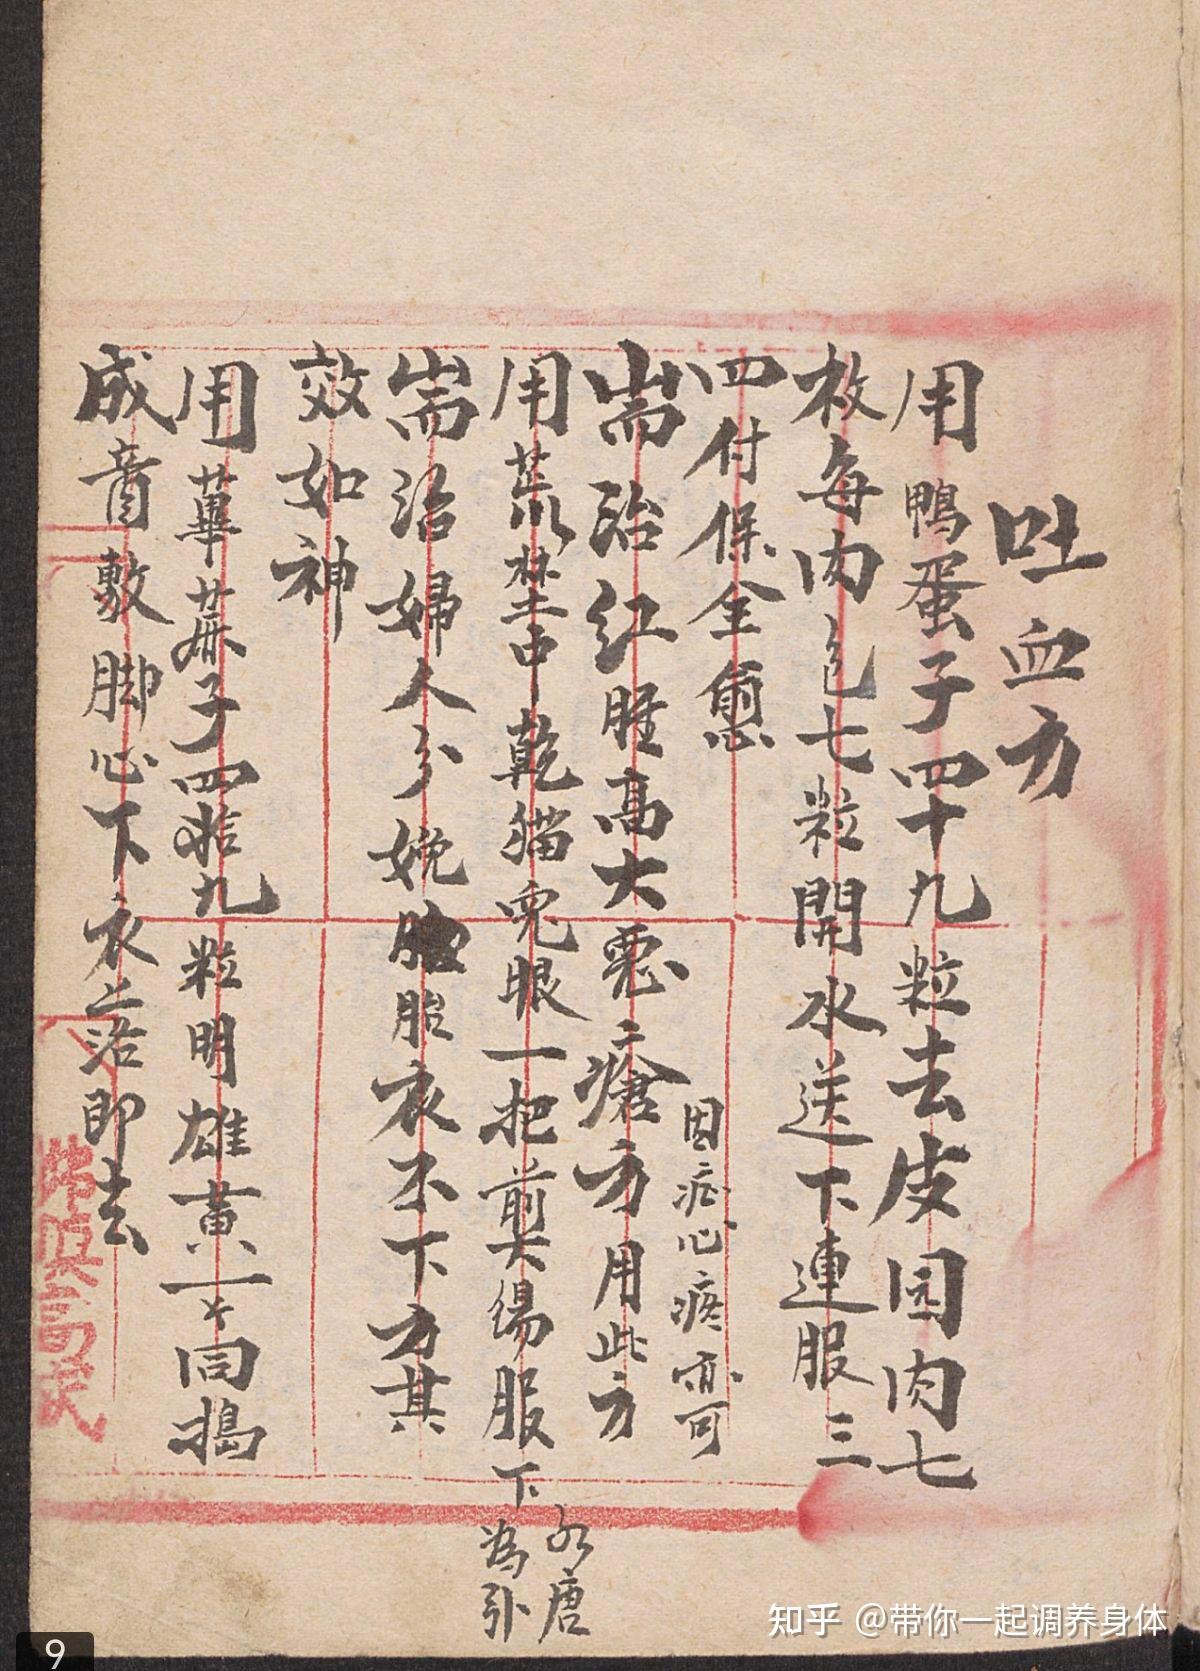 吐血方
用鴨蛋子四十九粒去皮园肉七
枚每肉包七粒開水送下連服三
四付保全愈
因症心疼亦可
耑治红腫高大惡瘡方用此方
用荒埜中乾貓兜眼一把煎湯服下
水唐
為引
耑治婦人分娩胎衣不下方其
效如神
用蓽蔴子四拾九粒明雄黄一同搗
成膏敷脚心下衣上治即去
知乎 @带你一起调养身体
9